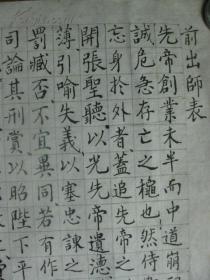 前出師表
先帝創業未半而中道崩
誠危急存亡之穐也然侍
忘身於外者蓋追先帝之
開張聖聽以光先帝遺德
薄引喻失義以塞忠諫之
罰臧否不宜異同若有作
司論其刑賞以昭陛下平